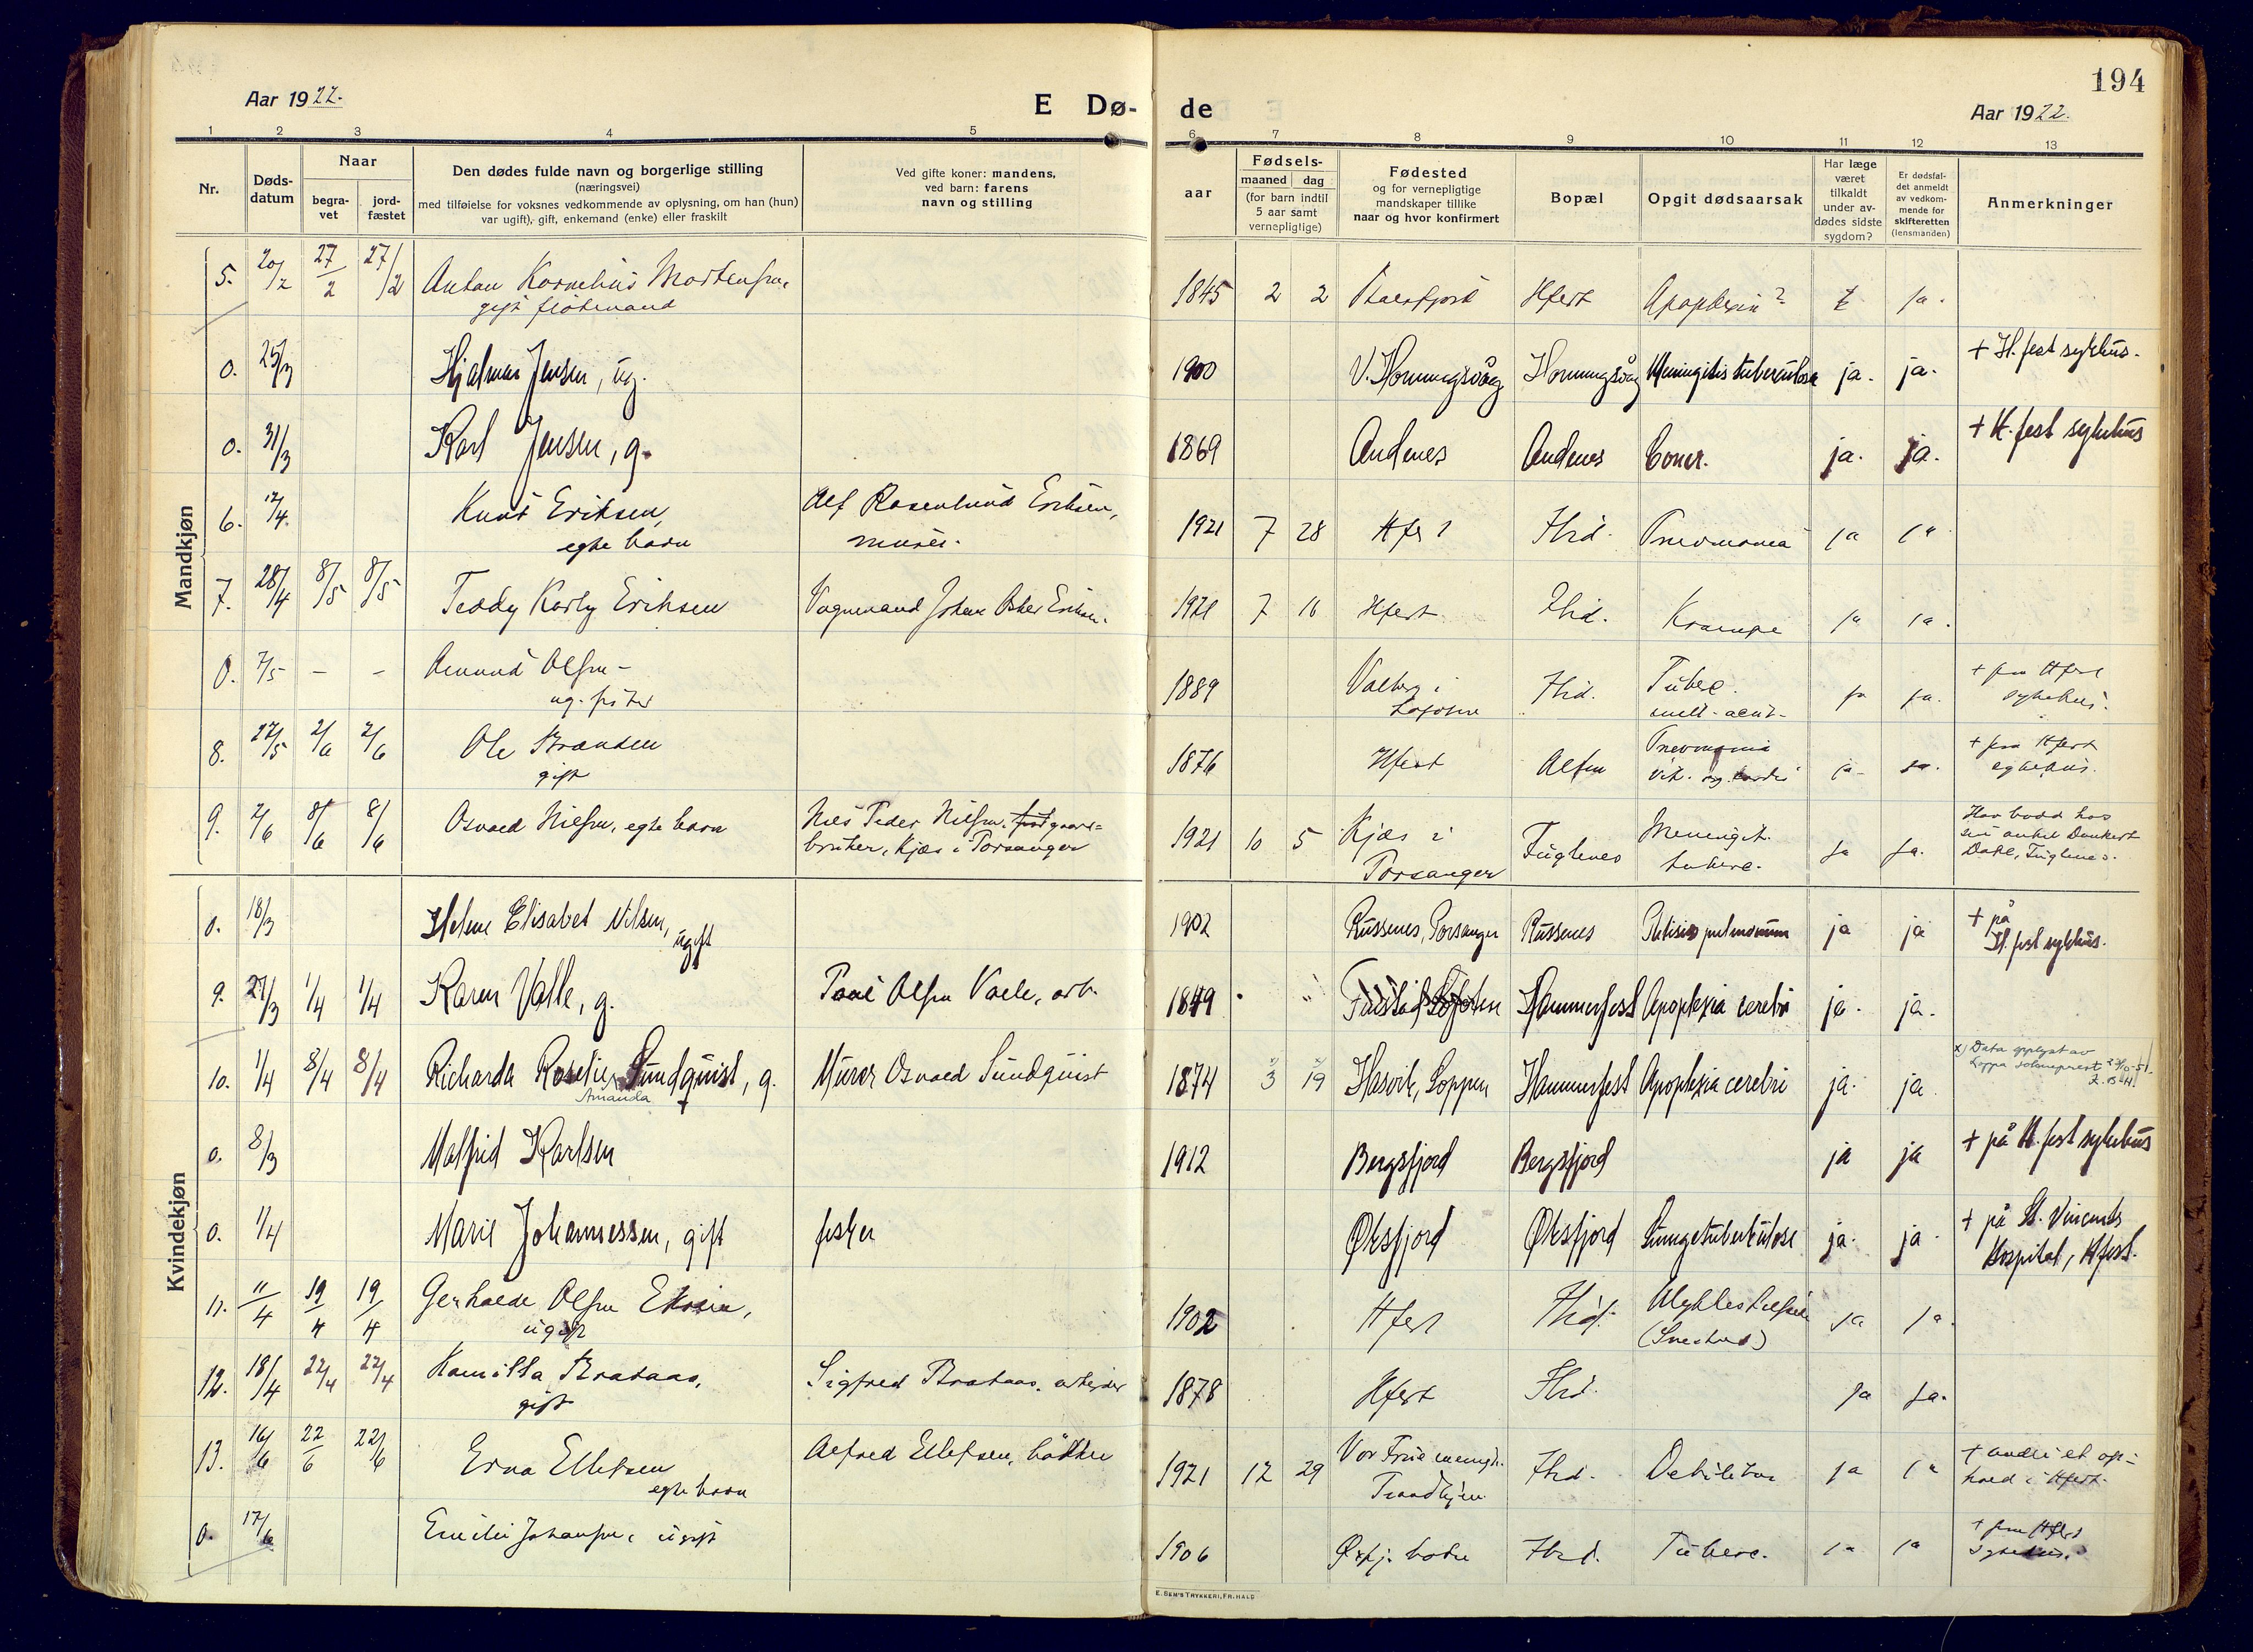 194
Aar 1922.
E Dø-
de
Aar 1922.
1 2 3 4 5 6 7 8 9 10 11 12 13
Nr.
Døds-
datum
Naar
begra-
vet
jord-
fæstet
Den dødes fulde navn og borgerlige stilling
(næringsvei)
med tilføielse for voksnes vedkommende av oplysning, om han (hun)
var ugift), gift, enkemand (enke) eller fraskilt
Ved gifte koner: mandens,
ved barn: farens
navn og stilling
aar
Fødsels-
maaned dag
(for barn indtil
5 aar samt
vernepligtige)
Fødested
og for vernepligtige
mandskaper tillike
naar og hvor konfirmert
Bopæl
Opgit dødsaarsak
Har læge
været
tilkaldt
under av-
dødes sidste
sygdom?
Er dødsfal-
det anmeldt
av vedkom-
mende for
skifteretten
(lensmanden)
Anmerkninger
Mandkjøn
5. 20/2 27/2 27/2 Anton Kornelius Mortensen, 1845 2 2 Hfest Apoplexia? ja.
gift
0. 25/3 Hjalmar Jensen, ug. 1900 V. Honningsvåg Honningsvåg Meningitis tuberculosa ja. ja. + H.fest sykhus.
0. 31/3 Karl Jensen, g. 1869 Andenes Andenes ja. ja. + H.fest sykehus
6. 17/4. Knut Eriksen, Alf Rosenlund Eriksen, 1921 7 28 Hfest Ibid. Pnevmonia ja ja
egte barn murer.
7. 28/4 8/5 8/5 Teddy Karly Eriksen Vognmand Johan Oskar Eriksen. 1921 7 16 Hfest Ibid. Krampe ja ja.
0. 7/5 - - Amund Olsen - 1889 Valberg i Ibid. Tuberc. ja ja. + paa Hfest
ug. Lofoten sykehus.
8. 27/5 2/6 2/6 Ole 1876 Hfest Alten Pnevmonia ja ja. + paa Hfest
gift sykehus.
9. 2/6 8/6 8/6 Osvald Nilsen, egte barn Nils Peder Nilsen, gaard= 1921 10 5 Kjæs i Fuglenes Meningit. ja ja. Har bodd hos
bruker, Kjæs i Porsanger Porsanger tuberc. sin onkel Dankert
Dahl, Fuglenes.
Kvindekjøn
0. 18/3 Helene Elisabet Nilsen, 1902 Russenes, Porsanger Russenes Phtisis pulmonum ja ja + på
ugift H.fest sykhus.
9. 27/3 1/4 1/4 Karen Valle, g. Paul Olsen Valle, arb. 1849 Lofoten Hammerfest Apoplexia cerebri ja. ja.
10. 1/4 8/4 8/4 Richarda Roselie Sundquist, g. Murer Osvald Sundquist 1874 x) 3 x) 19 Hasvik, Loppen Hammerfest Apoplexia cerebri ja. ja x) Data opplyst av
Amanda Loppa sokneprest
0. 8/3 Malfrid Karlsen 1912 Bergsfjord Bergsfjord ja ja + på H.fest sykehus
0. 1/4 Marie Johannessen, gift fisker Øksfjord Øksfjord Lungetuberkulose ja. ja. + på St. Vincents
Hospital, Hfest.
11. 11/4 19/4 19/4 Gerhalde Olsen 1902 Hfest Ibid. ja ja.
ugift
12. 18/4 22/4 22/4 Kamilla Brataas, Sigfred Brataas, arbeider 1878 Hfest Ibid. ja ja.
gift
13. 16/6 22/6 22/6 Erna Ellefsen Alfred Ellefsen, bøkker 1921 12 29 Vor Frue menigh. Ibid. Debilitas ja ja + under et op-
egte barn Trondhjem hold i Hfest.
0. 17/6 Emilie Johansen, ugift 1906 Ibid. Tuberc. ja ja + paa Hfest
sykehus.
E. SEM'S TRYKKERI, FR.HALD